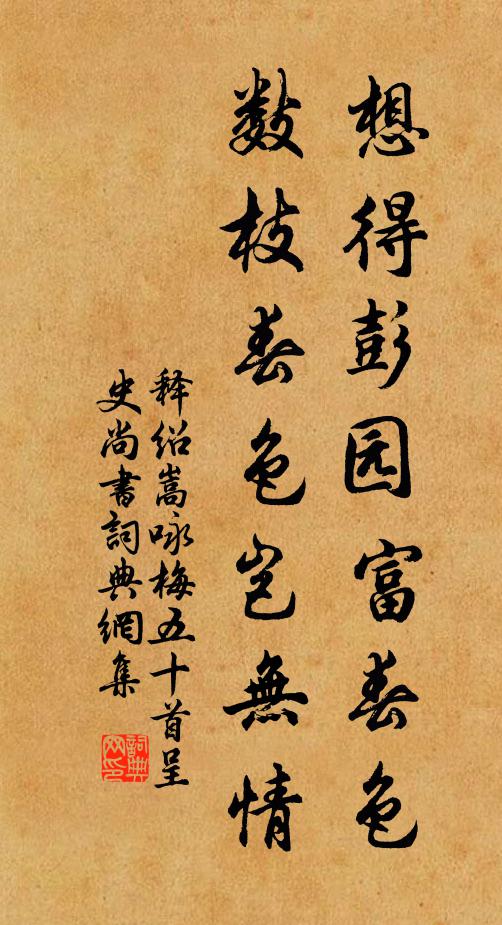 想得彭园富春色
数枝春色岂無情
释绍嵩咏梅五十首呈
史尚書詞典網集
詞典
网印